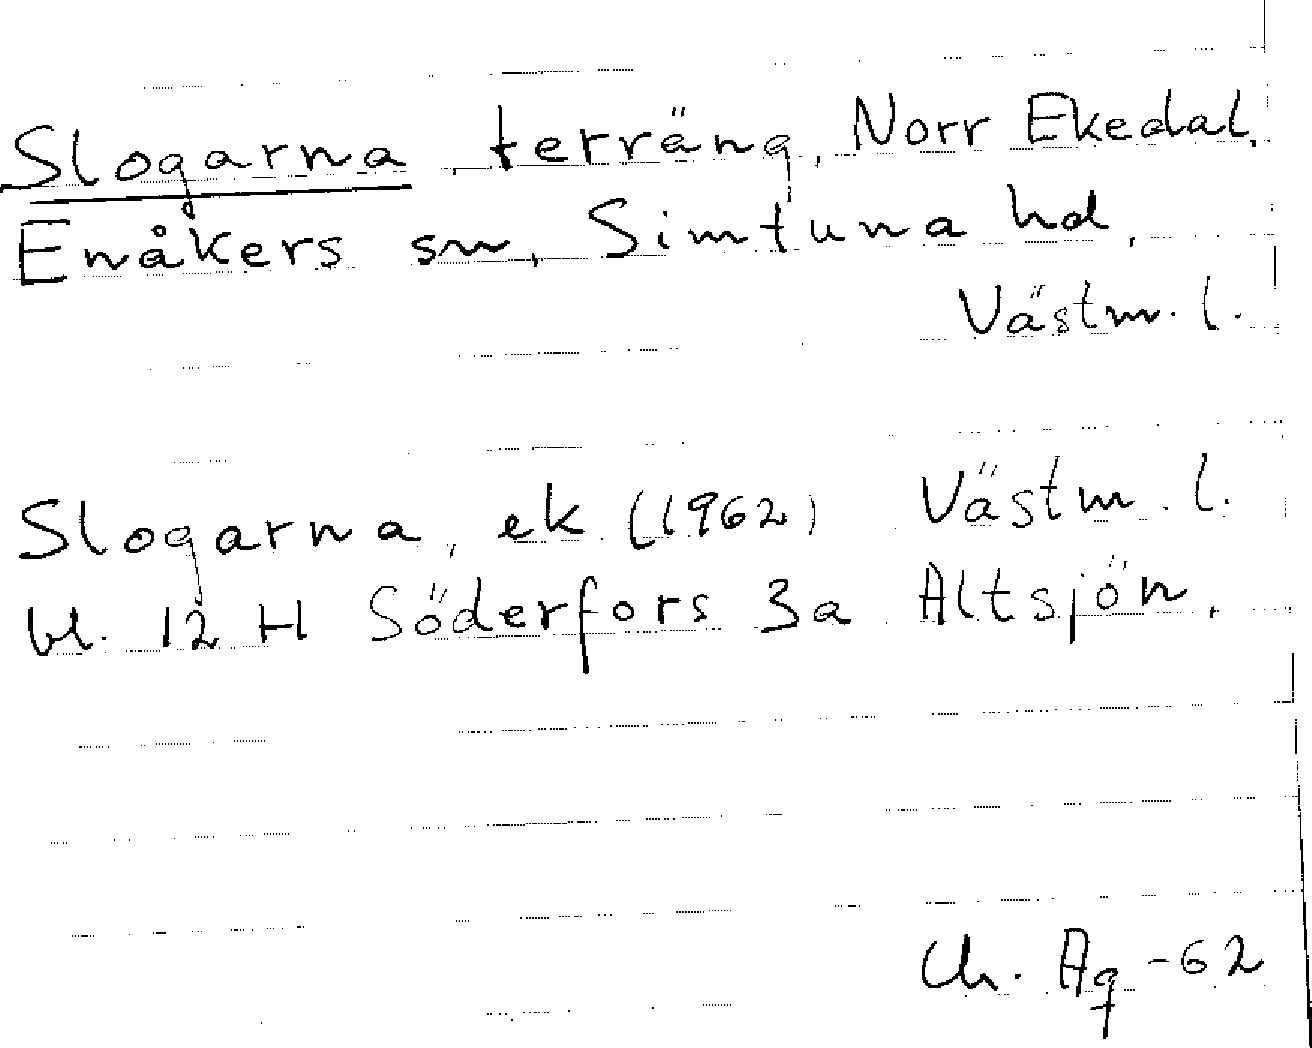 Slogarna, terräng, Norr Ekedal,
Enåkers sn, Simtuna hd,
Västm. l.
Slogarna, ek (1962) Västm. l.
bl. 12 H Söderfors 3a Altsjön.
Ch. Ag -62